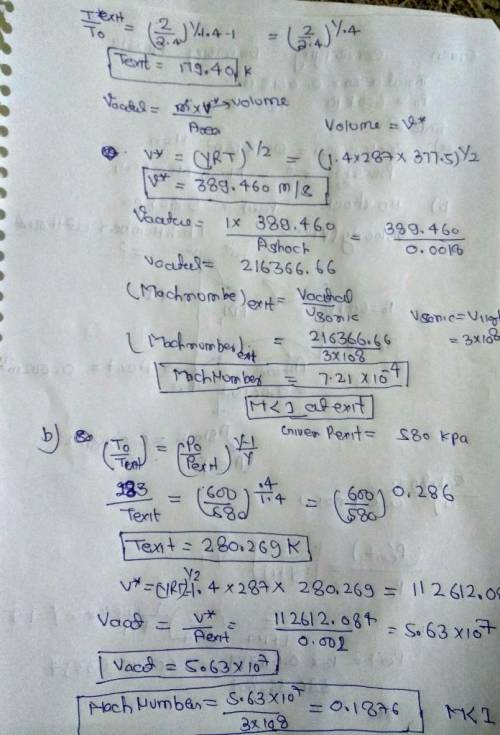 Texit/T0 = (2/2.4)^1/1.4-1 = (2/2.4)^1/.4
Texit = 179.40 K
Vactual = m* × V* → Volume / Area
Volume = V*
V* = (γRT)^1/2 = (1.4×287×377.5)^1/2
V* = 389.460 m/s
Vactual = 1× 389.460 / Ashock = 389.460 / 0.0018
Vactual = 216366.66
(Machnumbe)exit = Vactual / Vsonic
Vsonic = Vlight
= 3×10^8
(Machnumber)exit = 216366.66 / 3×10^8
MachNumber = 7.21 × 10^-4
M<1 at exit
Given Pexit = 580 kpa
b) (T0/Texit) = (P0/Pexit)^γ-1/γ
283/Texit = (600/580)^.4/1.4 = (600/580)^0.286
Texit = 280.269 K
V* = (γRT)^1/2 1.4 × 287 × 280.269 = 112612.08
Vact = V*/Aexit = 112612.084 / 0.002 = 5.63×10^7
Vact = 5.63×10^7
Mach Number = 5.63×10^7 / 3×10^8 = 0.1876 M<1